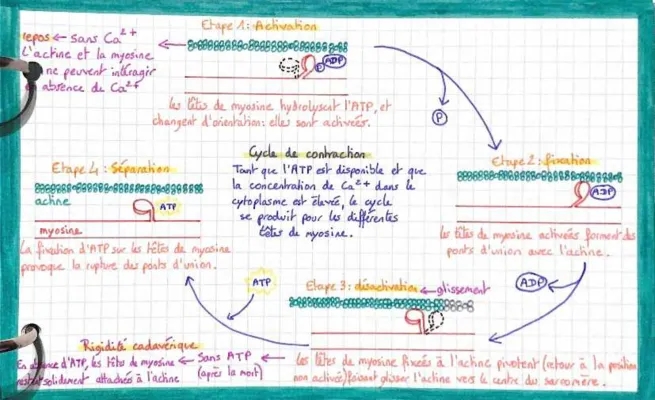 Etape 1: Activation
repos ← sans Ca²⁺
L'actine et la myosine
ne peuvent intéragir
en absence de Ca²⁺
P
ADP
Les têtes de myosine hydrolysent l'ATP, et
changent d'orientation: elles sont activées.
P
Cycle de contraction
Tant que l'ATP est disponible et que
la concentration de Ca²⁺ dans le
cytoplasme est élevée, le cycle
se produit pour les différentes
têtes de myosine.
Etape 2: fixation
ADP
les têtes de myosine activées forment des
ponts d'union avec l'actine.
ADP
Etape 3: désactivation ← glissement
Les têtes de myosine fixées à l'actine pivotent (retour à la position
non activée) faisant glisser l'actine vers le centre du sarcomère.
ATP
Etape 4: Séparation
actine
ATP
myosine
La fixation d'ATP sur les têtes de myosine
provoque la rupture des ponts d'union.
Rigidité cadavérique
En absence d'ATP, les têtes de myosine ← Sans ATP ←
restent solidement attachées à l'actine (après la mort)